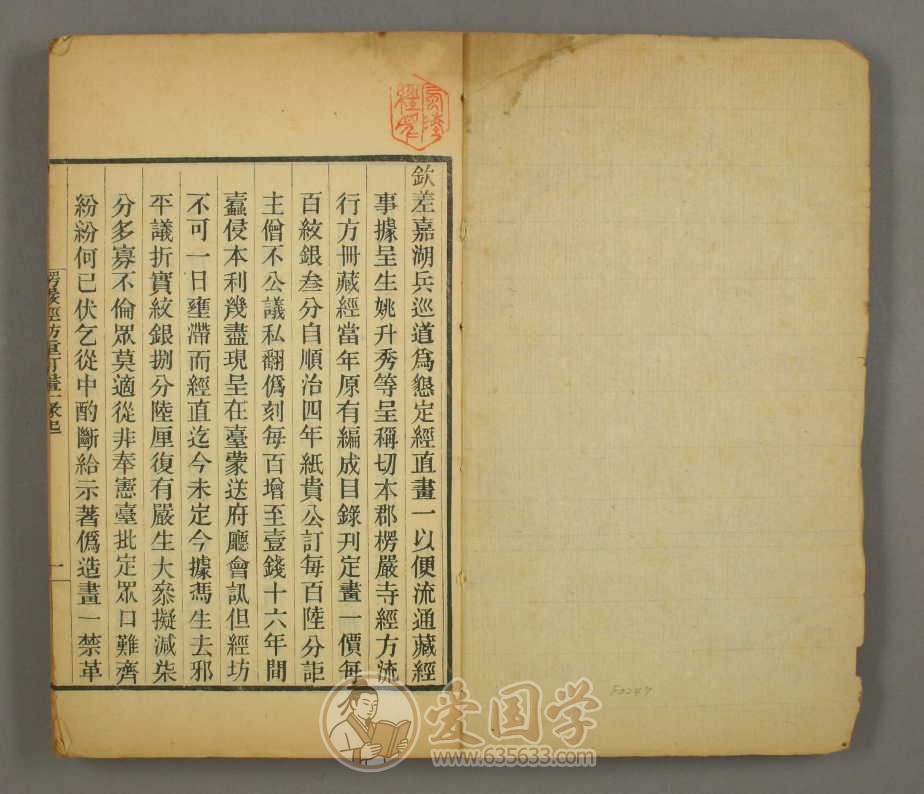 欽差嘉湖兵巡道為懇定經直畫一以便流通藏經
事據呈生姚升秀等呈稱切本郡楞嚴寺經方流
行方冊藏經當年原有編成目錄刊定畫一價每
百紋銀叁分自順治四年紙貴公訂每百陸分詎
主僧不公議私翻偽刻每百增至壹錢十六年間
蠹侵本利幾盡現呈在臺蒙送府廳會訊但經坊
不可一日壅滯而經直迄今未定今據馮生去邪
平議折實紋銀捌分陸厘復有嚴生大叅擬減柒
分多寡不倫眾莫適從非奉憲臺批定眾口難齊
紛紛何已伏乞從中酌斷給示著偽造畫一禁革
楞嚴經坊重訂畫一緣起
一
F0247
爱国学
www.635633.com